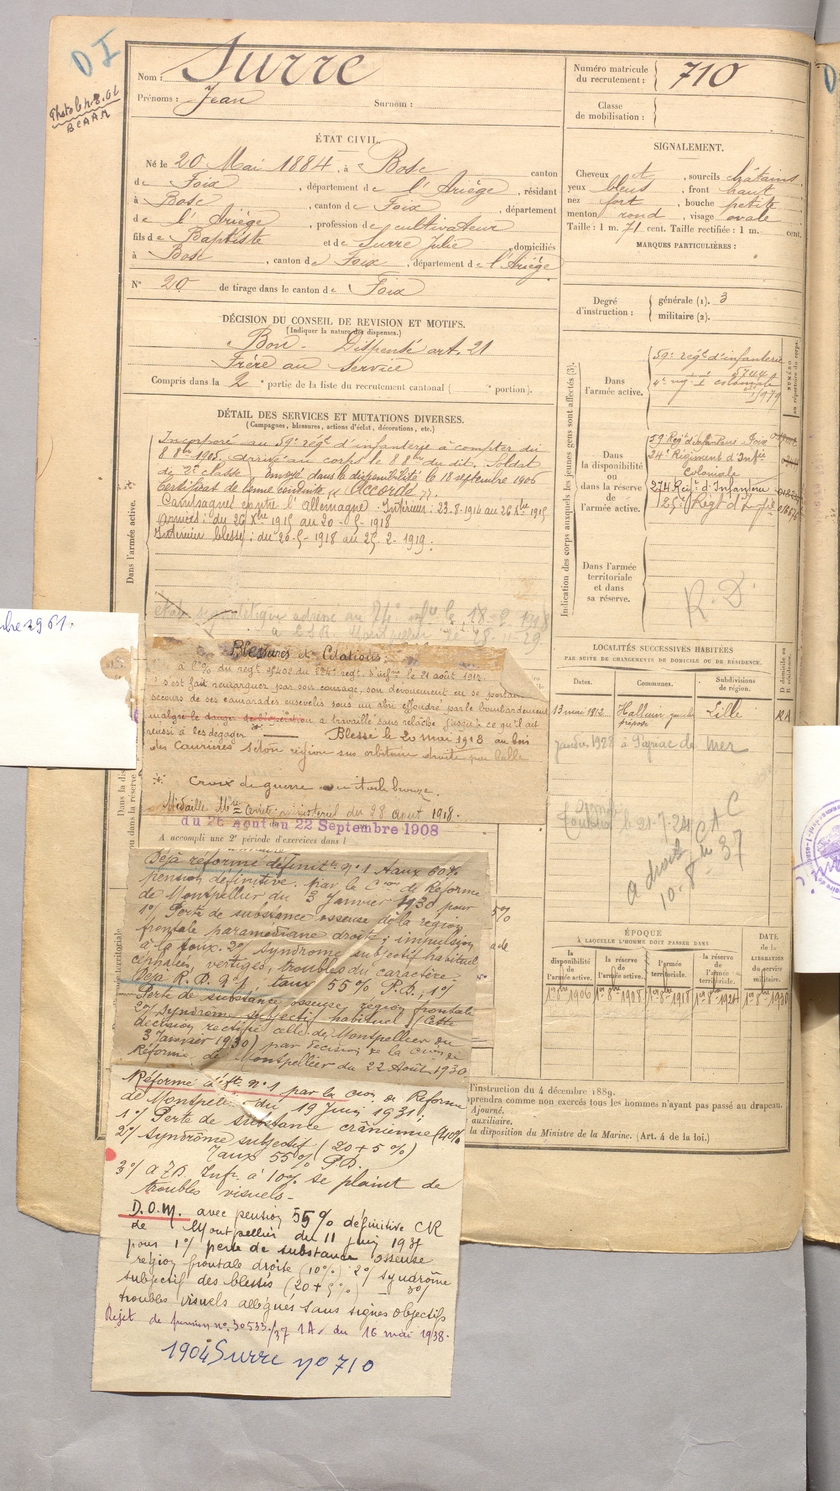 D I
Photo le 4.8.61
BCAAM
Nom : Surre
Prénoms : Jean Surnom :
Numéro matricule du recrutement : 710
Classe de mobilisation :
ÉTAT CIVIL.
Né le 20 Mai 1884, à Bosc canton
de Foix, département de l'Ariège, résidant
à Bosc, canton de Foix, département
de l'Ariège, profession de cultivateur
fils de Baptiste et de Surre Julie, domiciliés
à Bosc, canton de Foix, département de l'Ariège
N° 20 de tirage dans le canton de Foix
SIGNALEMENT.
Cheveux et, sourcils châtains
yeux bleus, front haut
nez fort, bouche petite
menton rond, visage ovale
Taille : 1 m. 71 cent. Taille rectifiée : 1 m. cent.
MARQUES PARTICULIÈRES :
Degré d'instruction : générale (1). 3
militaire (2).
DÉCISION DU CONSEIL DE REVISION ET MOTIFS.
(Indiquer la nature des dispenses.)
Bon - Dispensé art. 21
Frère au service
Compris dans la 2e partie de la liste du recrutement cantonal ( portion).
DÉTAIL DES SERVICES ET MUTATIONS DIVERSES.
(Campagnes, blessures, actions d'éclat, décorations, etc.)
Dans l'armée active.
Incorporé au 59e régt d'infanterie à compter du
8 8bre 1905, arrivé au corps le 8 8bre du dit. Soldat
de 2e classe, envoyé dans la disponibilité le 18 septembre 1906
Certificat de bonne conduite « Accordé ».
Campagnes contre l'allemagne. Intérieur : 23-8-1914 au 26 Xbre 1915
armées : du 26 Xbre 1915 au 20-5-1918
Intérieur blessé : du 20-5-1918 au 25-2-1919.
Indication des corps auxquels les jeunes gens sont affectés (3).
Dans l'armée active.
59e régt d'infanterie
5744
4e régt i coloniale
1/979
Dans la disponibilité ou dans la réserve de l'armée active.
59 Régt d'infanterie Foix
24e Régiment d'Infie
Coloniale
274 Régt d'Infanterie
125e Régt d'Infie
Dans l'armée territoriale et dans sa réserve.
R. D.
mbre 1961.
Blessures et Citations
à l'O. du régt n° 408 du 124e régt. d'inf. le 21 août 1917.
s'est fait remarquer par son courage, son dévouement en se portant
secours de ses camarades ensevelis sous un abri effondré par le bombardement
malgré le danger a travaillé sans relâche jusqu'à ce qu'il ait
réussi à les dégager Blessé le 20 mai 1918 au bois
des Caurières sétou région sus orbitaire droite par balle
Croix de guerre étoile bronze.
Médaille Mre arrêté ministériel du 28 août 1918.
du 26 août au 22 Septembre 1908
A accompli une 2e période d'exercices dans l
LOCALITÉS SUCCESSIVES HABITÉES
PAR SUITE DE CHANGEMENTS DE DOMICILE OU DE RÉSIDENCE.
Dates. Communes. Subdivisions de région.
13 mai 1912 Halluin Lille
préposé
C.A.C
à droit
10-8- 37
ÉPOQUE
À LAQUELLE L'HOMME DOIT PASSER DANS
la disponibilité de l'armée active. la réserve de l'armée active. l'armée territoriale. la réserve de l'armée territoriale.
DATE de la LIBÉRATION du service militaire.
1er 8bre 1906 1er 8bre 1908 1er 8bre 1918 1er 8bre 1924 1er 8bre 1930
Déjà réformé définitif n° 1 taux 60%
pension définitive. par la Cion de Réforme
de Montpellier du 3 Janvier 1930 pour
1°/ Perte de substance osseuse de la région
frontale paramédiane droite ; impulsion
à la toux. 2°/ syndrome subjectif habituel
céphalées, vertiges, troubles du caractère.
Déjà R. D. n° 1 taux 55% P.D., 1°/
Perte de substance osseuse, région frontale
2°/ syndrome subjectif habituel (Cette
décision rectifie celle de Montpellier du
3 Janvier 1930) par décision de la Cion de
Réforme de Montpellier du 22 Août 1930
Réformé déft. n° 1 par la Cion de Réforme
de Montpellier du 19 Juin 1931.
1°/ Perte de substance crânienne (40%)
2°/ syndrôme subjectif (20 + 5 %)
Taux 55% P.D.
3°/ A.T.D. Inf. à 10% se plaint de
troubles visuels.
D.O.M. avec pension 55% définitive CR
de Montpellier du 11 juin 1937
pour 1°/ perte de substance osseuse
région frontale droite (10%) 2°/ syndrôme
subjectif des blessés (20+5%) - 3°/
troubles visuels allégués sans signes objectifs
Rejet de pension n° 30533/37 1A. du 16 mai 1938.
1904 Surre n° 710
l'instruction du 4 décembre 1889.
prendra comme non exercés tous les hommes n'ayant pas passé au drapeau.
Ajourné.
auxiliaire.
la disposition du Ministre de la Marine. (Art. 4 de la loi.)